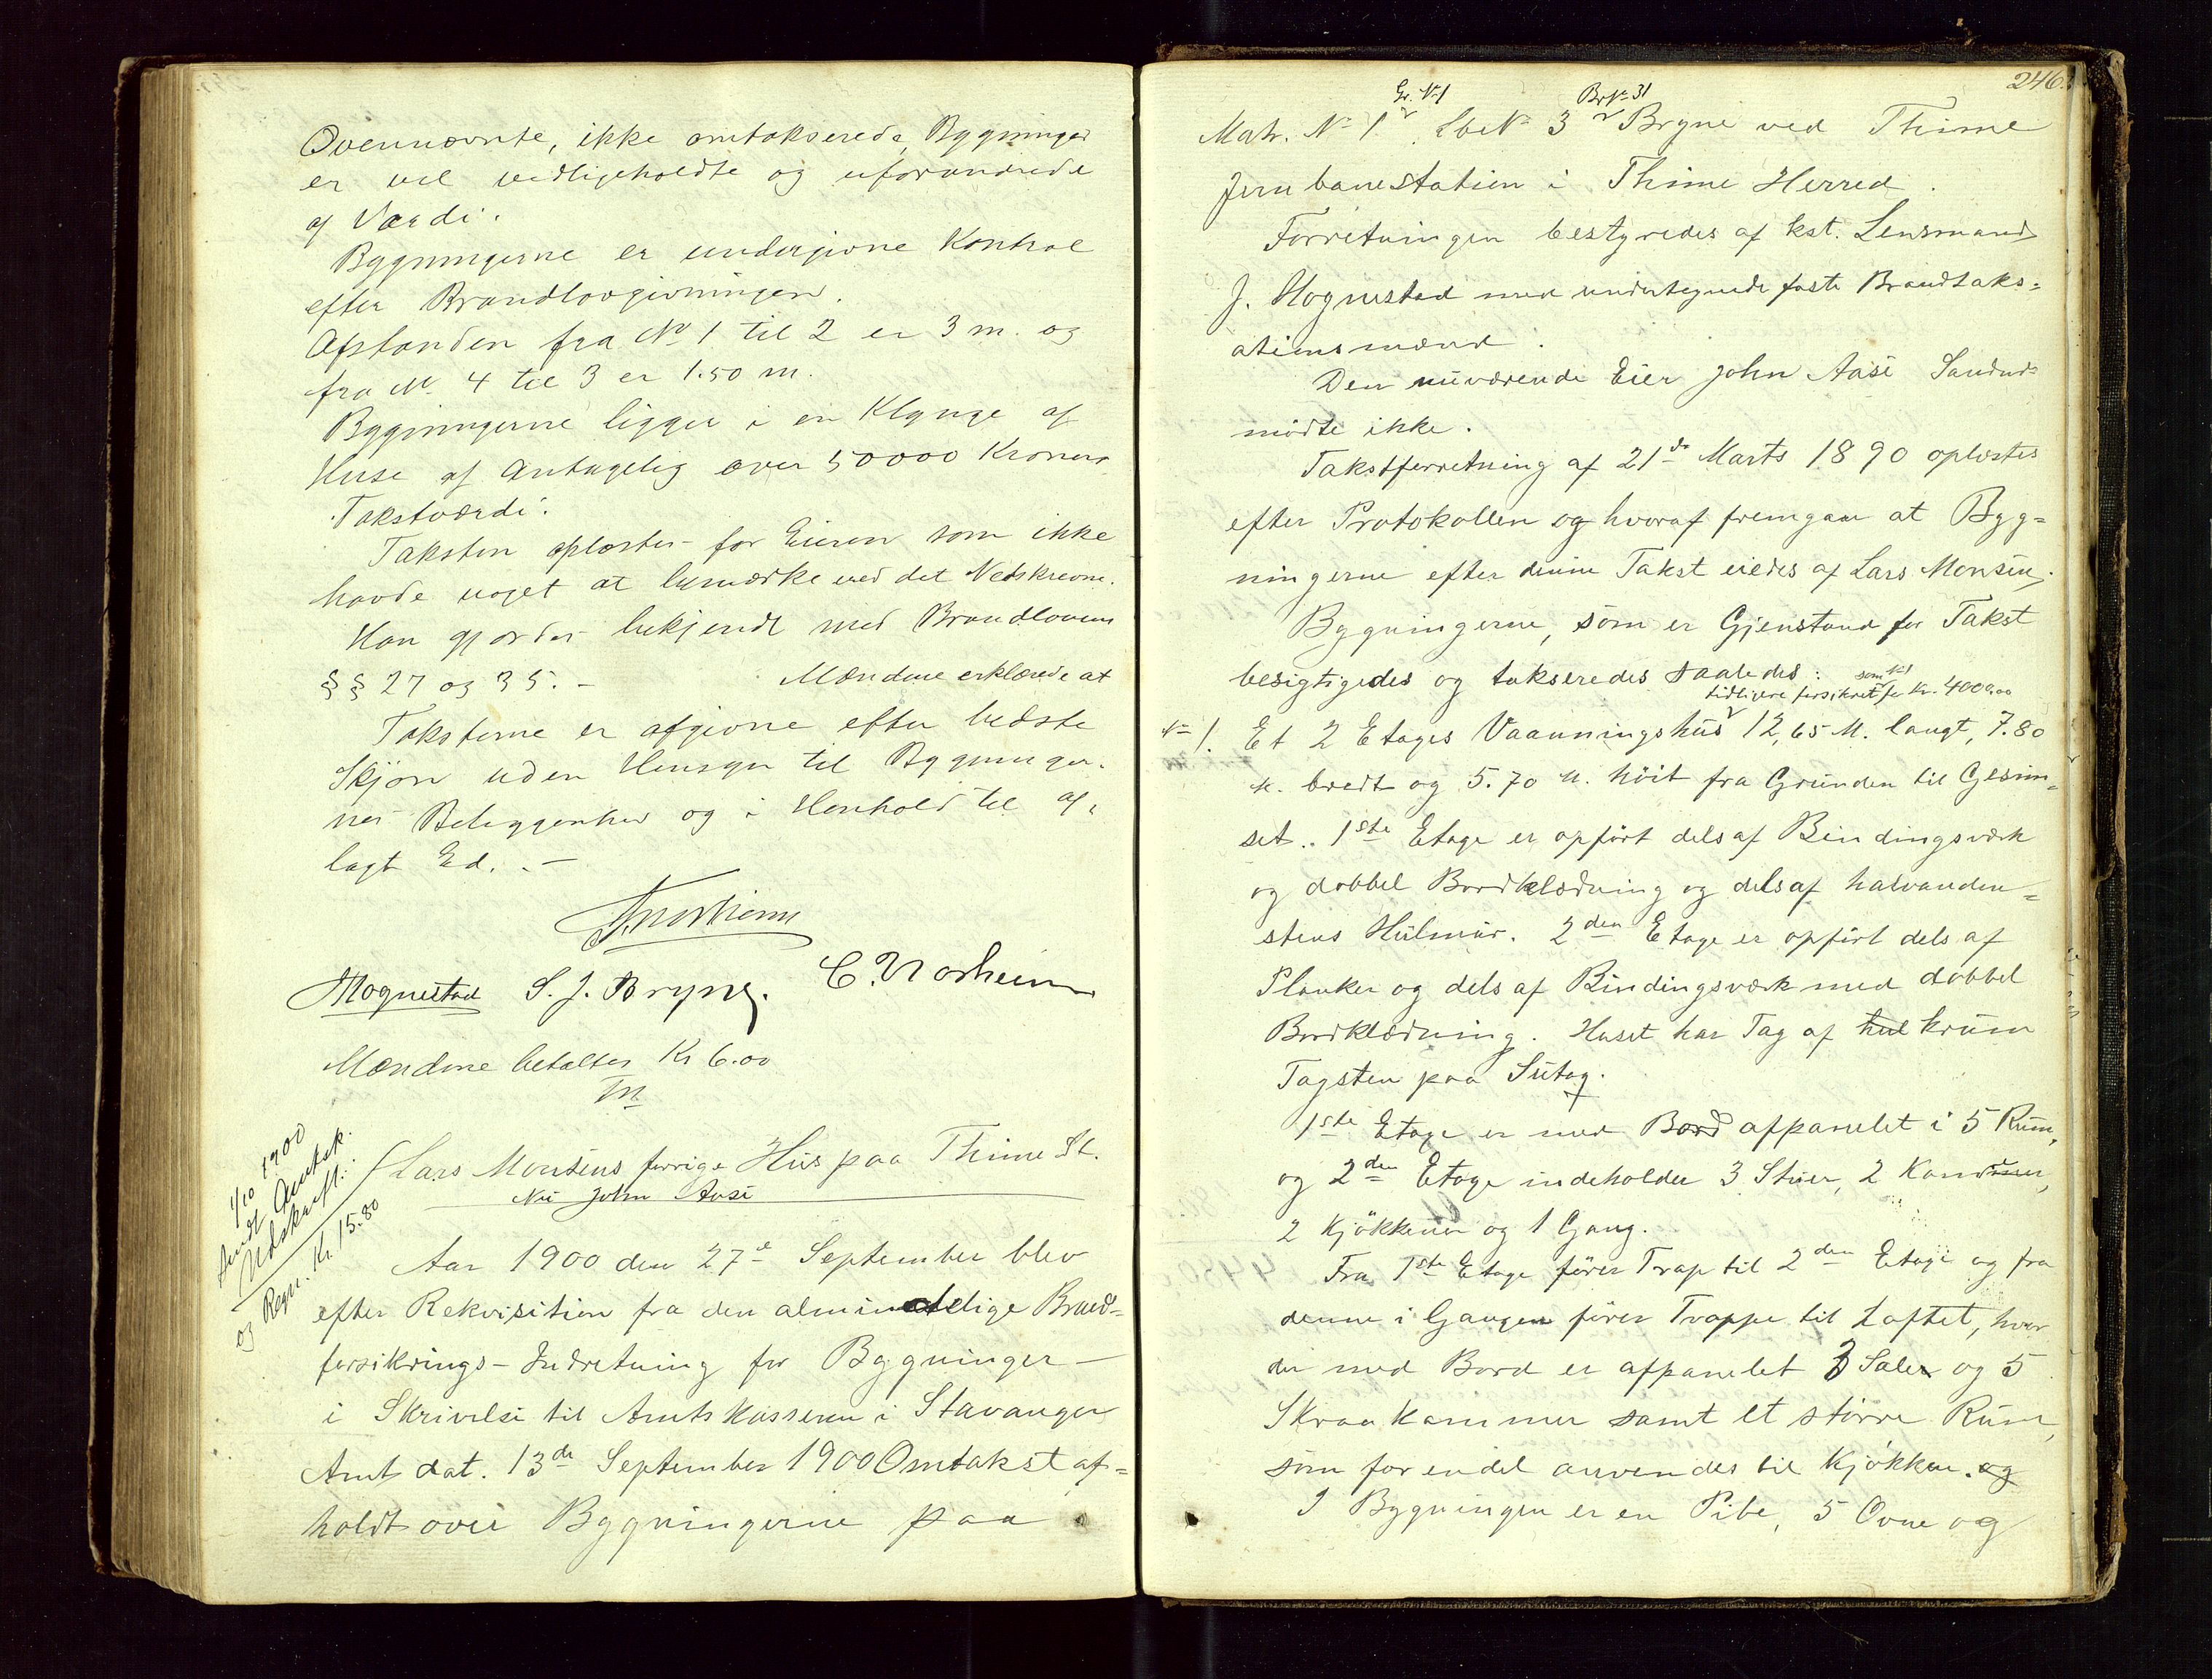 Ovennævnte, ikke omtakserede, Bygninger
er vel vedligeholdte og uforandrede
af Værdi.
Bygningerne er undergivne Kontrol
efter Brandlovgivningen.
Afstanden fra No 1 til 2 er 3 m. og
fra No 4 til 3 er 1.50 m.
Bygningerne ligger i en Klynge af
Huse af antagelig over 50000 Kroners
Takstværdi.
Taksten oplæstes for Eieren som ikke
havde noget at bemærke ved det Nedskrevne.
Han gjordes bekjendt med Brandlovens
§§ 27 og 35. – Mændene erklærede at
Taksterne er afgivne efter bedste
Skjøn uden Hensyn til Bygninger-
nes Beliggenhed og i Henhold til af-
lagt Ed. –
Hognestad S. J. Bryne. C. Norheim
Mændene betaltes Kr 6.00
1/10 1900
sendt Amtsk.
Udskrift.
og Regn. Kr. 15.80
Lars Monsens forrige Hus paa Thime St.
Nu John Aase
Aar 1900 den 27de September blev
efter Rekvisition fra den almindelige Brand-
forsikrings-Indretning for Bygninger –
i Skrivelse til Amtskasseren i Stavanger
Amt dat. 13de September 1900 Omtakst af-
holdt over Bygningerne paa
246.
Gr. No 1 Br No 31
Matr. No 1 Lbe No 3 Bryne ved Thime
Jernbanestation i Thime Herred.
Forretningen bestyredes af kst. Lensmand
J. Hognestad med undertegnede faste Brandtaks-
ationsmænd.
Den nuværende Eier John Aase Sandnes
mødte ikke.
Takstforretning af 21de Marts 1890 oplæstes
efter Protokollen og hvoraf fremgaar at Byg-
ningerne efter denne Takst eiedes af Lars Monsen.
Bygningerne, som er Gjenstand for Takst
besigtigedes og takseredes saaledes:
som No 1
tidligere forsikret for Kr. 4000.00
No 1. Et 2 Etages Vaaningshus 12,65 M. langt, 7.80
M. bredt og 5.70 M. høit fra Grunden til Gesim-
set. 1ste Etage er opført dels af Bindingsværk
og dobbel Bordklædning og dels af halvanden-
stens Hulmur. 2den Etage er opført dels af
Planker og dels af Bindingsværk med dobbel
Bordklædning. Huset har Tag af hul krum
Tagsten paa Sutag.
1ste Etage er med Bord afpanelet i 5 Rum,
og 2den Etage indeholder 3 Stuer, 2 Kammer,
2 Kjøkkener og 1 Gang.
Fra 1ste Etage fører Trap til 2den Etage og fra
denne i Gangen fører Trappe til Loftet, hvor
der med Bord er afpanelet 3 Saler og 5
Skraakammer samt et større Rum,
som for endel anvendes til Kjøkken. og
I Bygningen er en Pibe, 5 Ovne og